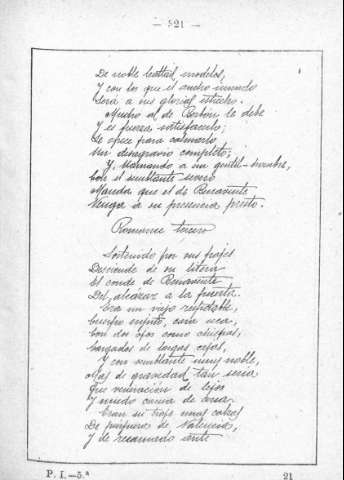 — 321 —
De noble lealtad modelos,
Y con los que el ancho mundo
Será a sus glorias estrecho.
Mucho al de Borbón le debe
Y es fuerza satisfacerlo;
Le ofrece para calmarlo
Un desagravio completo;
Y, llamando a un gentil-hombre,
Con el semblante severo
Manda que el de Benavente
Venga a su presencia presto.
Romance tercero
Sostenido por sus pajes
Desciende de su litera
El conde de Benavente
Del alcázar a la puerta.
Era un viejo respetable,
Cuerpo enjuto, cara seca,
Con dos ojos como chispas,
Cargados de largas cejas,
Y con semblante muy noble,
Mas de gravedad tan seria
Que veneración de lejos
Y miedo causa de cerca.
Eran su traje unas calzas
De púrpura de Valencia,
Y de recamado ante
P. I.—5.ª
21